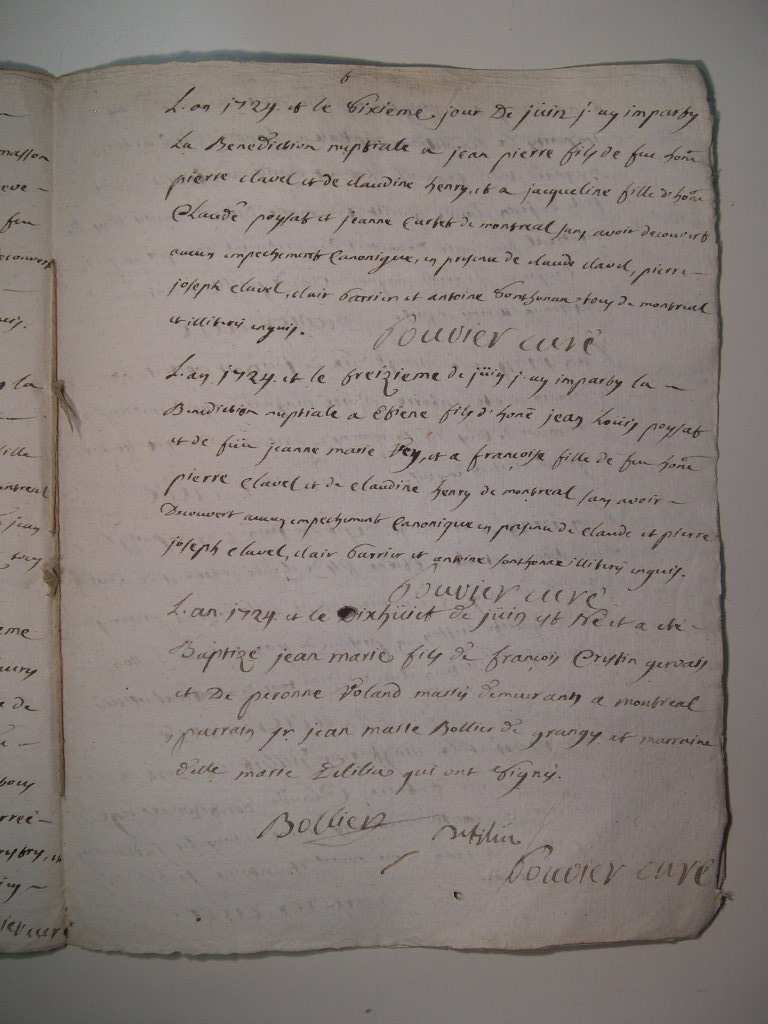 6
L'an 1724 et le sixieme jour de jüin j'ay imparty
la Benediction nuptiale a jean pierre fils de feu hon.
pierre clavel et de claudine henry, et a jacqueline fille d'hon.
Claude poysat et jeanne de montreal sans avoir decouvert
aucun empechement Canonique, en presence de claude clavel, pierre
joseph clavel, clair et antoine tous de montreal
et illiterés enquis. bouvier curé
L'an 1724 et le treizieme de jüin j'ay imparty la
Benediction nuptiale a Etiene fils d'hon. jean Loüis poysat
et de füe jeanne marie Rey, et a françoise fille de feu hon.
pierre clavel et de claudine henry de montreal sans avoir
Decouvert aucun empechement Canonique en presence de claude et pierre
joseph clavel, clair et antoine illiterés enquis.
bouvier curé
L'an 1724 et le dixhüict de jüin est né et a eté
Baptizé jean marie fils de françois Cristin gervais
et De peronne Voland mariés demeurants a montreal
parrain sr. jean marie Bollier de grangy et marraine
delle marie qui ont signés.
Bollier
bouvier curé
masson
feu
decouvert
la
fille
montreal
jean
de
curé